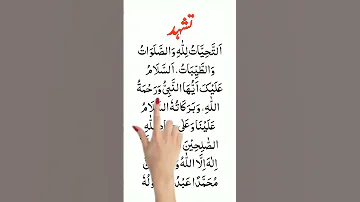 تشهد
اَلتَّحِيَّاتُ لِلّٰهِ وَالصَّلَوَاتُ
وَالطَّيِّبَاتُ، اَلسَّلَامُ
عَلَيْكَ اَيُّهَا النَّبِيُّ وَرَحْمَةُ
اللّٰهِ، وَبَرَكَاتُهٗ السَّلَامُ
عَلَيْنَا وَعَلٰى
الصّٰلِحِيْنَ
اِلٰهَ اِلَّا اللّٰهُ
مُحَمَّدًا عَبْدُ